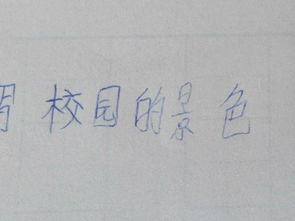 校园的景色